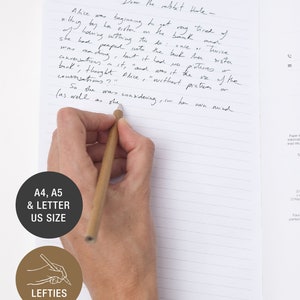 Down the rabbit hole -
Alice was beginning to get very tired of
sitting by her sister on the bank and
of having nothing to do: once or twice
she had peeped into the book her sister
was reading, but it had no pictures or
conversations in it, "and what is the use of a
book", thought Alice, "without pictures or
conversations?"
So she was considering, in her own mind
(as well as she
A4, A5
& LETTER
US SIZE
LEFTIES